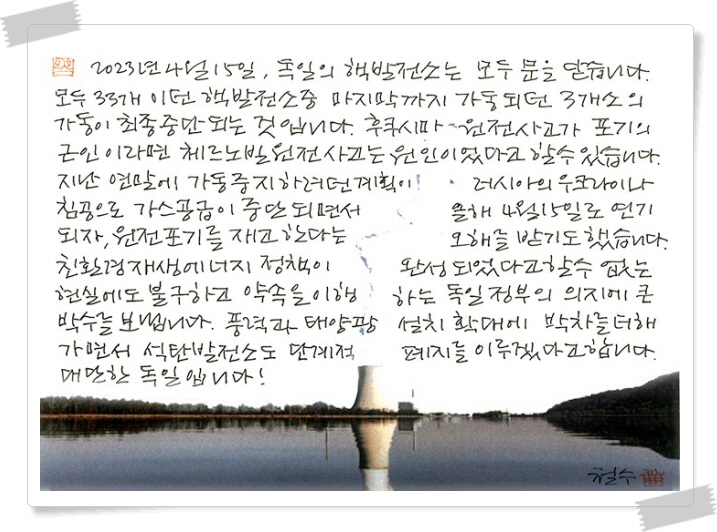 2023년 4월 15일, 독일의 핵발전소는 모두 문을 닫습니다.
모두 33개 이던 핵발전소중 마지막까지 가동되던 3개소의
가동이 최종중단 되는 것 입니다. 후쿠시마 원전사고가 포기의
근인 이라면 체르노빌원전사고는 원인이었다고 할수 있습니다.
지난 연말에 가동중지하려던계획이 러시아의 우크라이나
침공으로 가스공급이 중단 되면서 올해 4월15일로 연기
되자, 원전포기를 재고한다는 오해를 받기도 했습니다.
친환경재생에너지 정책이 완성 되었다고할수 없는
현실에도 불구하고 약속을 이행 하는 독일 정부의 의지에 큰
박수를 보냅니다. 풍력과 태양광 설치 확대에 박차를 더해
가면서 석탄발전소도 단계적 폐지를 이루겠다고합니다.
대단한 독일 입니다!
철수